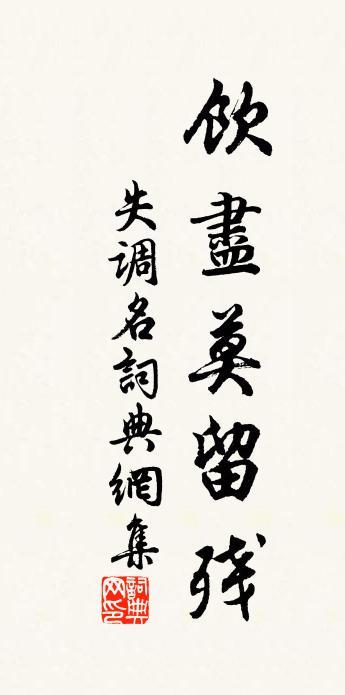 飲盡莫留殘
失調名詞典網集
詞典網印